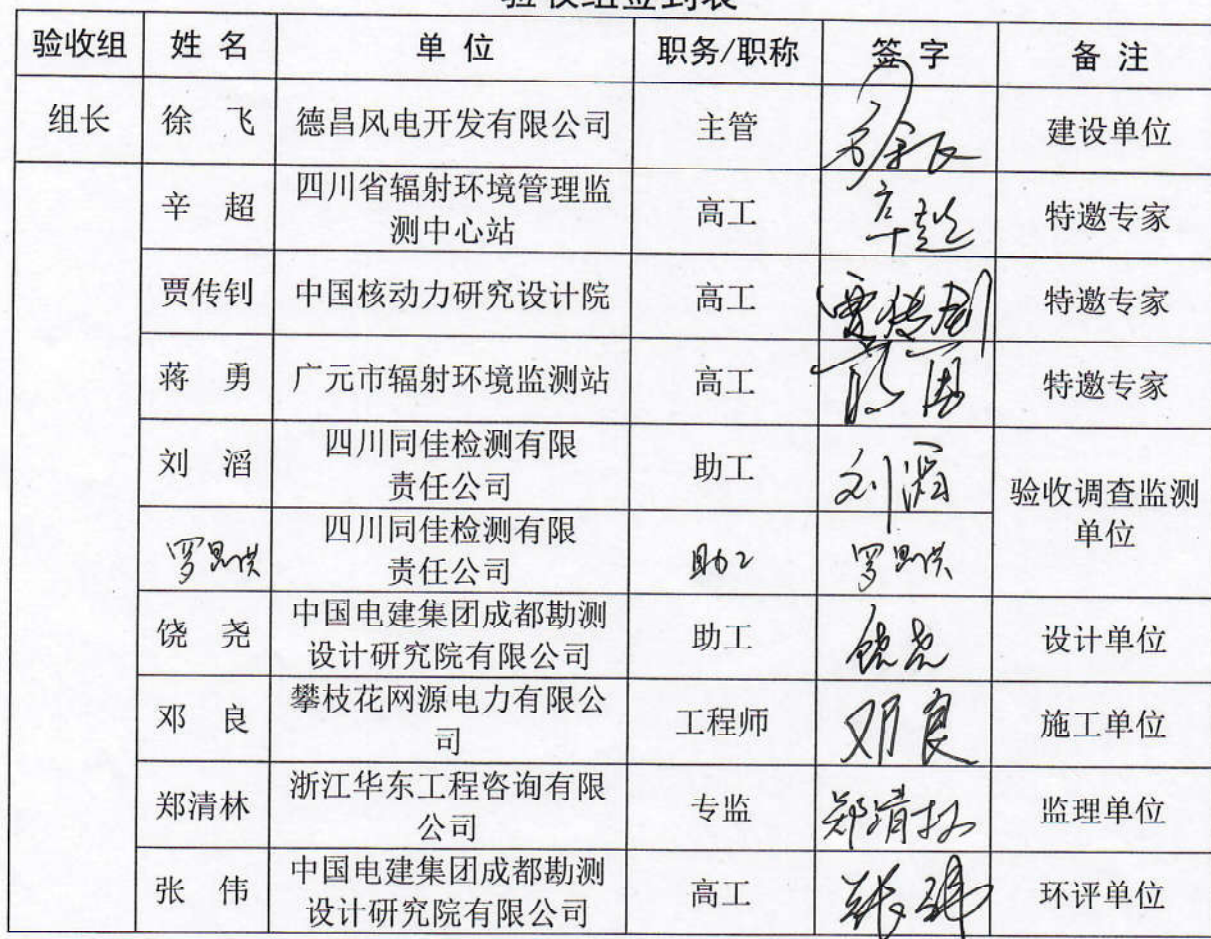 验收组签到表
验收组 姓 名 单 位 职务/职称 签 字 备 注
组长 徐 飞 德昌风电开发有限公司 主管 徐飞 建设单位
辛 超 四川省辐射环境管理监
测中心站 高工 辛超 特邀专家
贾传钊 中国核动力研究设计院 高工 贾传钊 特邀专家
蒋 勇 广元市辐射环境监测站 高工 特邀专家
刘 滔 四川同佳检测有限
责任公司 助工 刘滔 验收调查监测
单位
四川同佳检测有限
责任公司 助工
饶 尧 中国电建集团成都勘测
设计研究院有限公司 助工 饶尧 设计单位
邓 良 攀枝花网源电力有限公
司 工程师 邓良 施工单位
郑清林 浙江华东工程咨询有限
公司 专监 郑清林 监理单位
张 伟 中国电建集团成都勘测
设计研究院有限公司 高工 张伟 环评单位